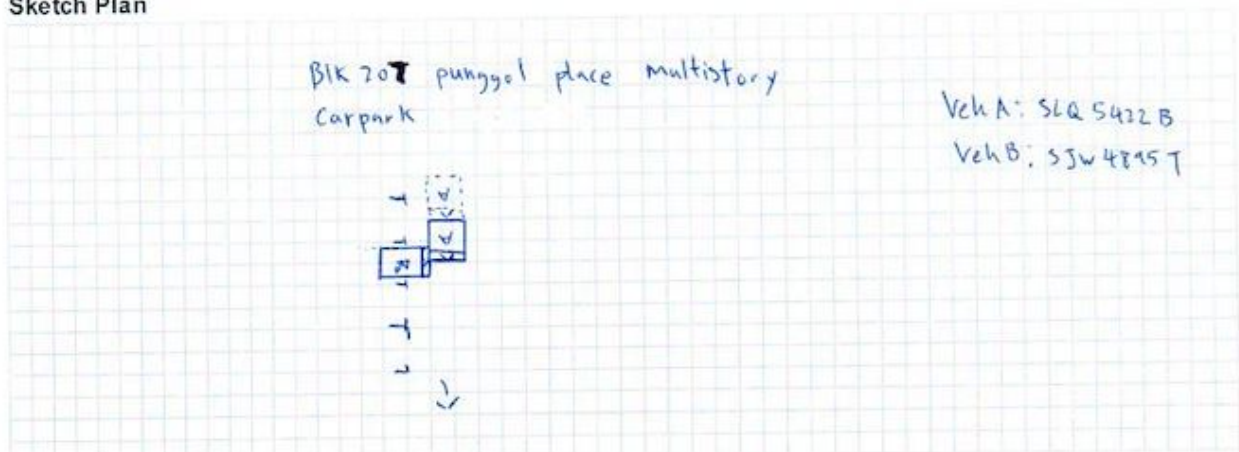 Sketch Plan
Blk 207 punggol place multistory
Carpark
Veh A: SLQ 5422 B
Veh B: SJW 4895 T
A
A
B